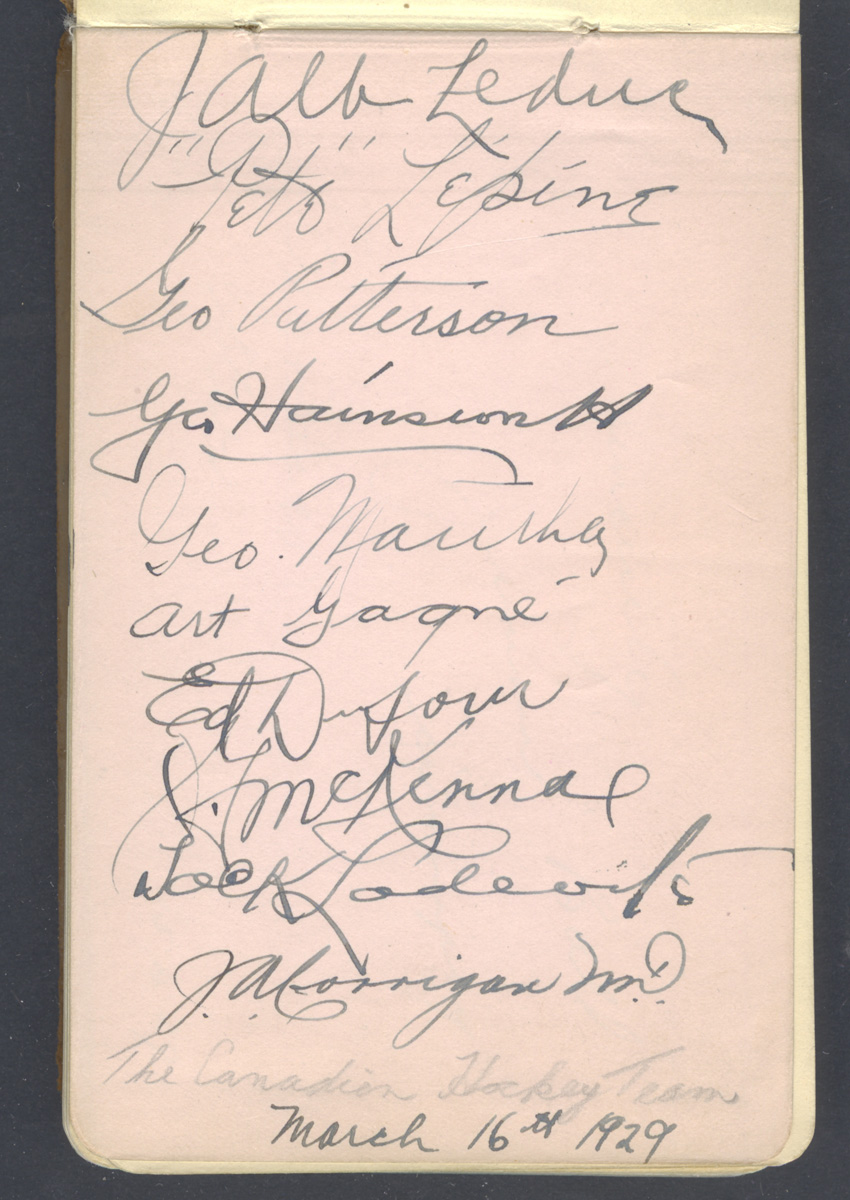 J Alb Leduc
"Pete" Lépine
Geo Patterson
Geo. Hainsworth
Geo. Mantha
Art Gagné
Ed Dufour
J. McKenna
Jack
J. A. Corrigan M.D.
The Canadien Hockey Team
March 16th 1929